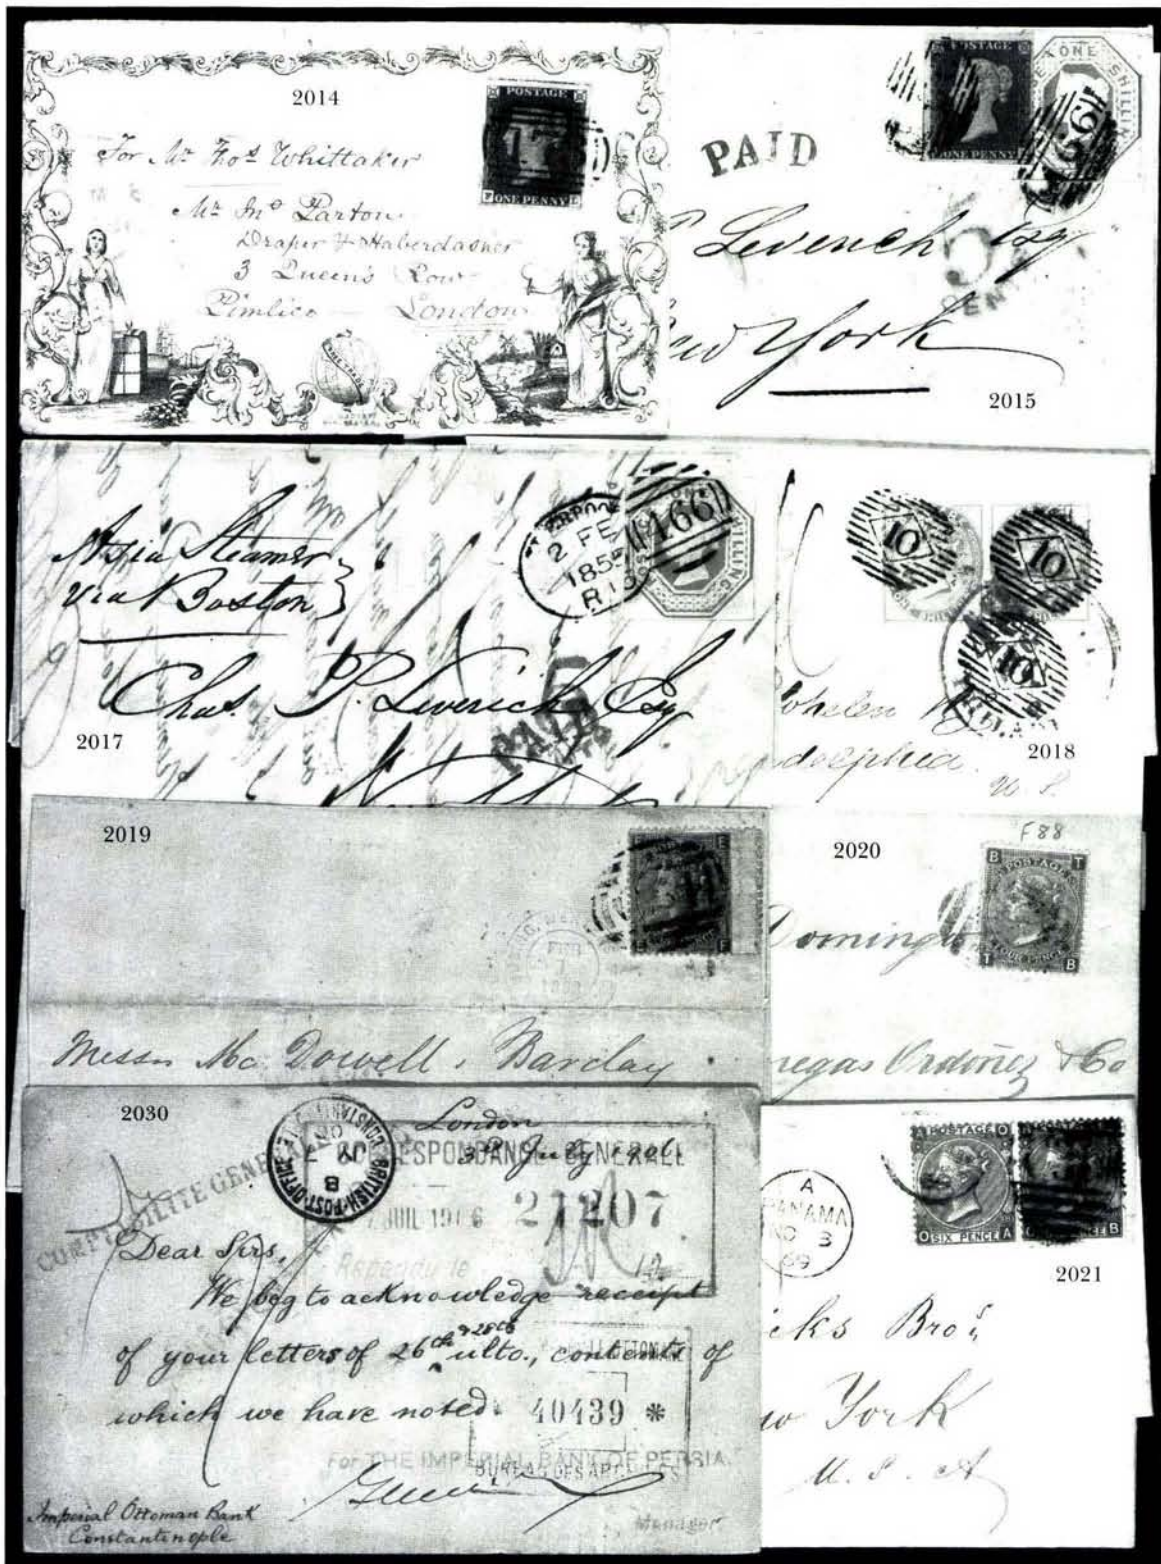 2014
POSTAGE
ONE PENNY
For Mr Thos Whittaker
Mr Jno Parton
Draper & Haberdasher
3 Queen's Row
Pimlico London
POSTAGE
ONE PENNY
ONE SHILLIN
PAID
Levench Esq
New York
2015
Asia Steamer
via Boston
2 FE
1855
466
SHILLING
Chas. P. Leverich Esq
PAID
2017
10
10
10
2018
U.S.
2019
E
E F
Messrs Mc Dowell & Barclay
2020
F88
B T
POSTAGE
FOUR PENCE
T B
Domingo
negas Ordoñez & Co
2030
London
BRITISH POST OFFICE
CONSTANTINOPLE
CORRESPONDANCE GENERALE
COMPTABILITE GENERALE
JUIL 1906
21207
Répondu le
Dear Sirs,
We beg to acknowledge receipt
of your letters of 26th & 28th ulto., contents of
which we have noted.
40439 *
For THE IMPERIAL BANK OF PERSIA
BUREAU DES ARCHIVES
Manager
Imperial Ottoman Bank
Constantinople
A
PANAMA
NO 3
69
A POSTAGE O
O SIX PENCE A
2021
cks Bros
New York
U.S.A